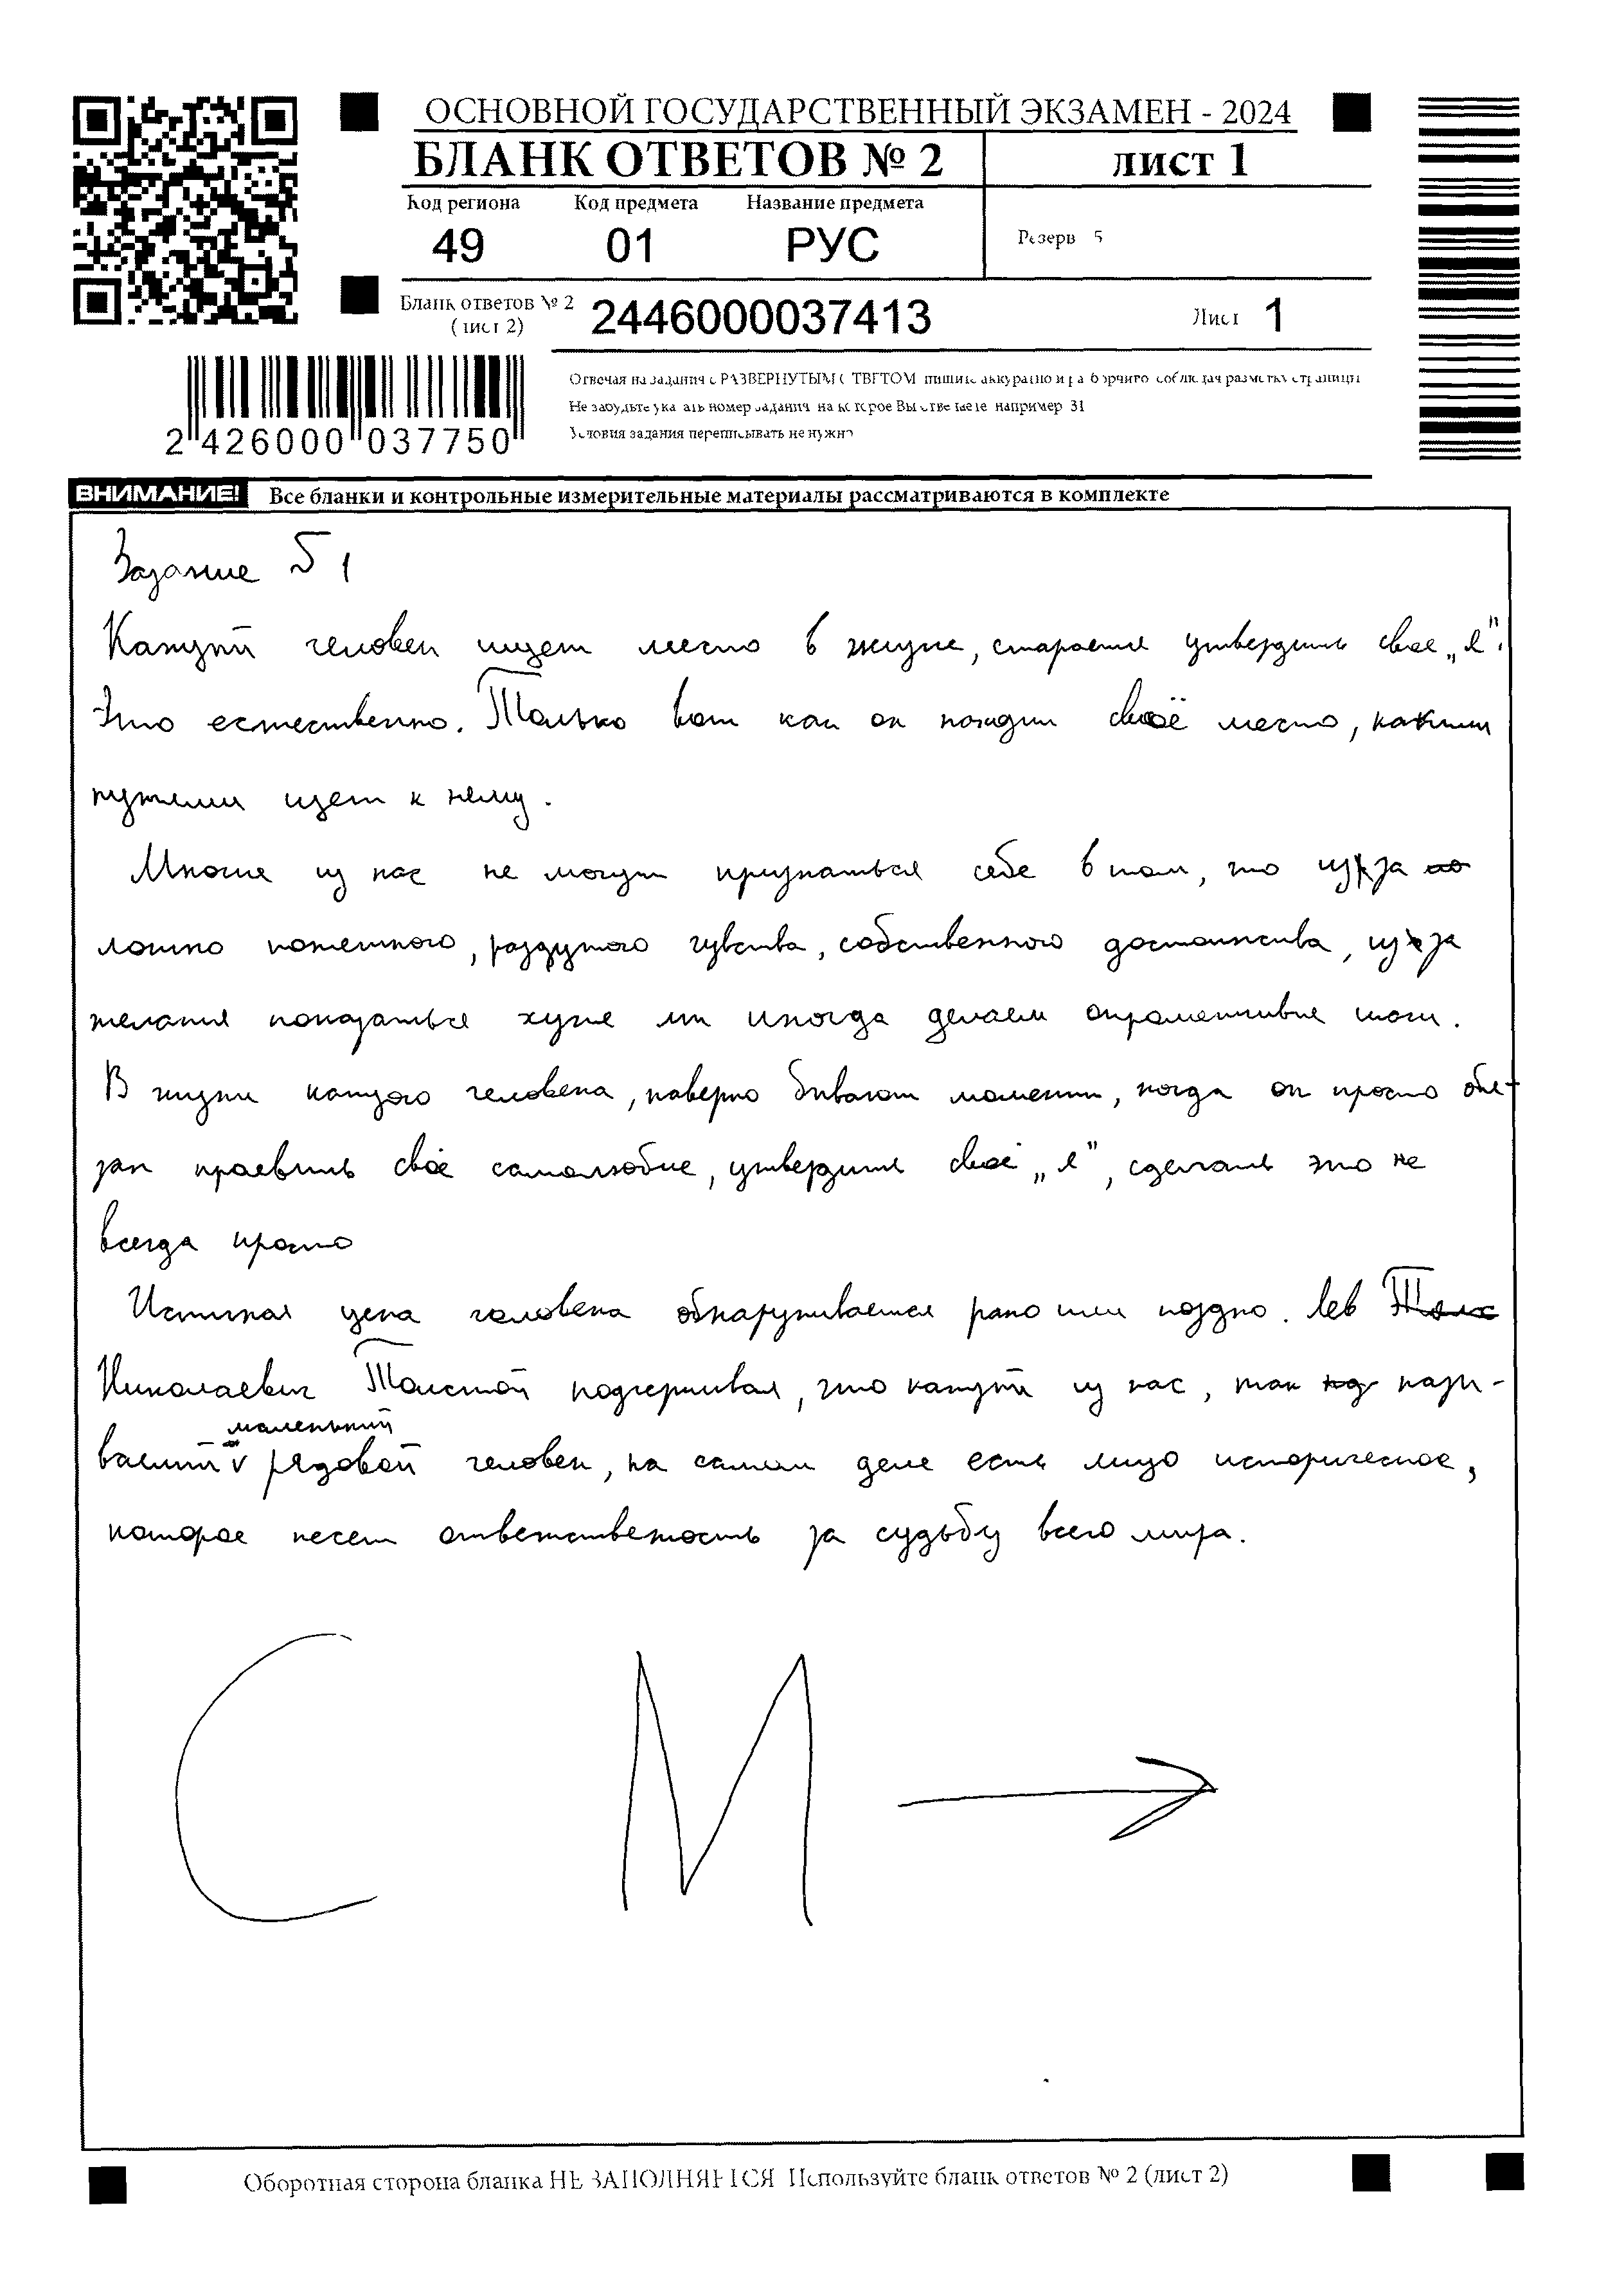 ОСНОВНОЙ ГОСУДАРСТВЕННЫЙ ЭКЗАМЕН - 2024
БЛАНК ОТВЕТОВ № 2
лист 1
Код региона Код предмета Название предмета
49 01 РУС
Резерв 5
Бланк ответов № 2
(лист 2)
2446000037413
Лист 1
Отвечая на задания с РАЗВЕРНУТЫМ ОТВЕТОМ пишите аккуратно и разборчиво соблюдая разметку страницы
Не забудьте указать номер задания на которое Вы отвечаете например 31
Условия задания переписывать не нужно
2 426000 037750
ВНИМАНИЕ! Все бланки и контрольные измерительные материалы рассматриваются в комплекте
Задание 1
Каждый человек ищет место в жизне, старается утвердить свое „Я".
Это естественно. Только вот как он находит своё место, какими
путями идет к нему.
Многие из нас не могут признаться себе в том, что из за
ложно потешного, раздутого чувства, собственного достоинства, из за
желания показаться хуже мы иногда делаем опрометчивые шаги.
В жизни каждого человека, наверно бывают моменты, когда он просто обя-
зан проевить своё самолюбие, утвердить своё „Я", сделать это не
всегда просто
Истиная цена человека обнаруживается рано или поздно. Лев
Николаевич Толстой подчеркивал, что каждый из нас, так назы-
маленький
ваемый рядовой человек, на самом деле есть лицо историческое,
которое несет ответственость за судьбу всего мира.
С М
Оборотная сторона бланка НЕ ЗАПОЛНЯЕТСЯ Используйте бланк ответов № 2 (лист 2)